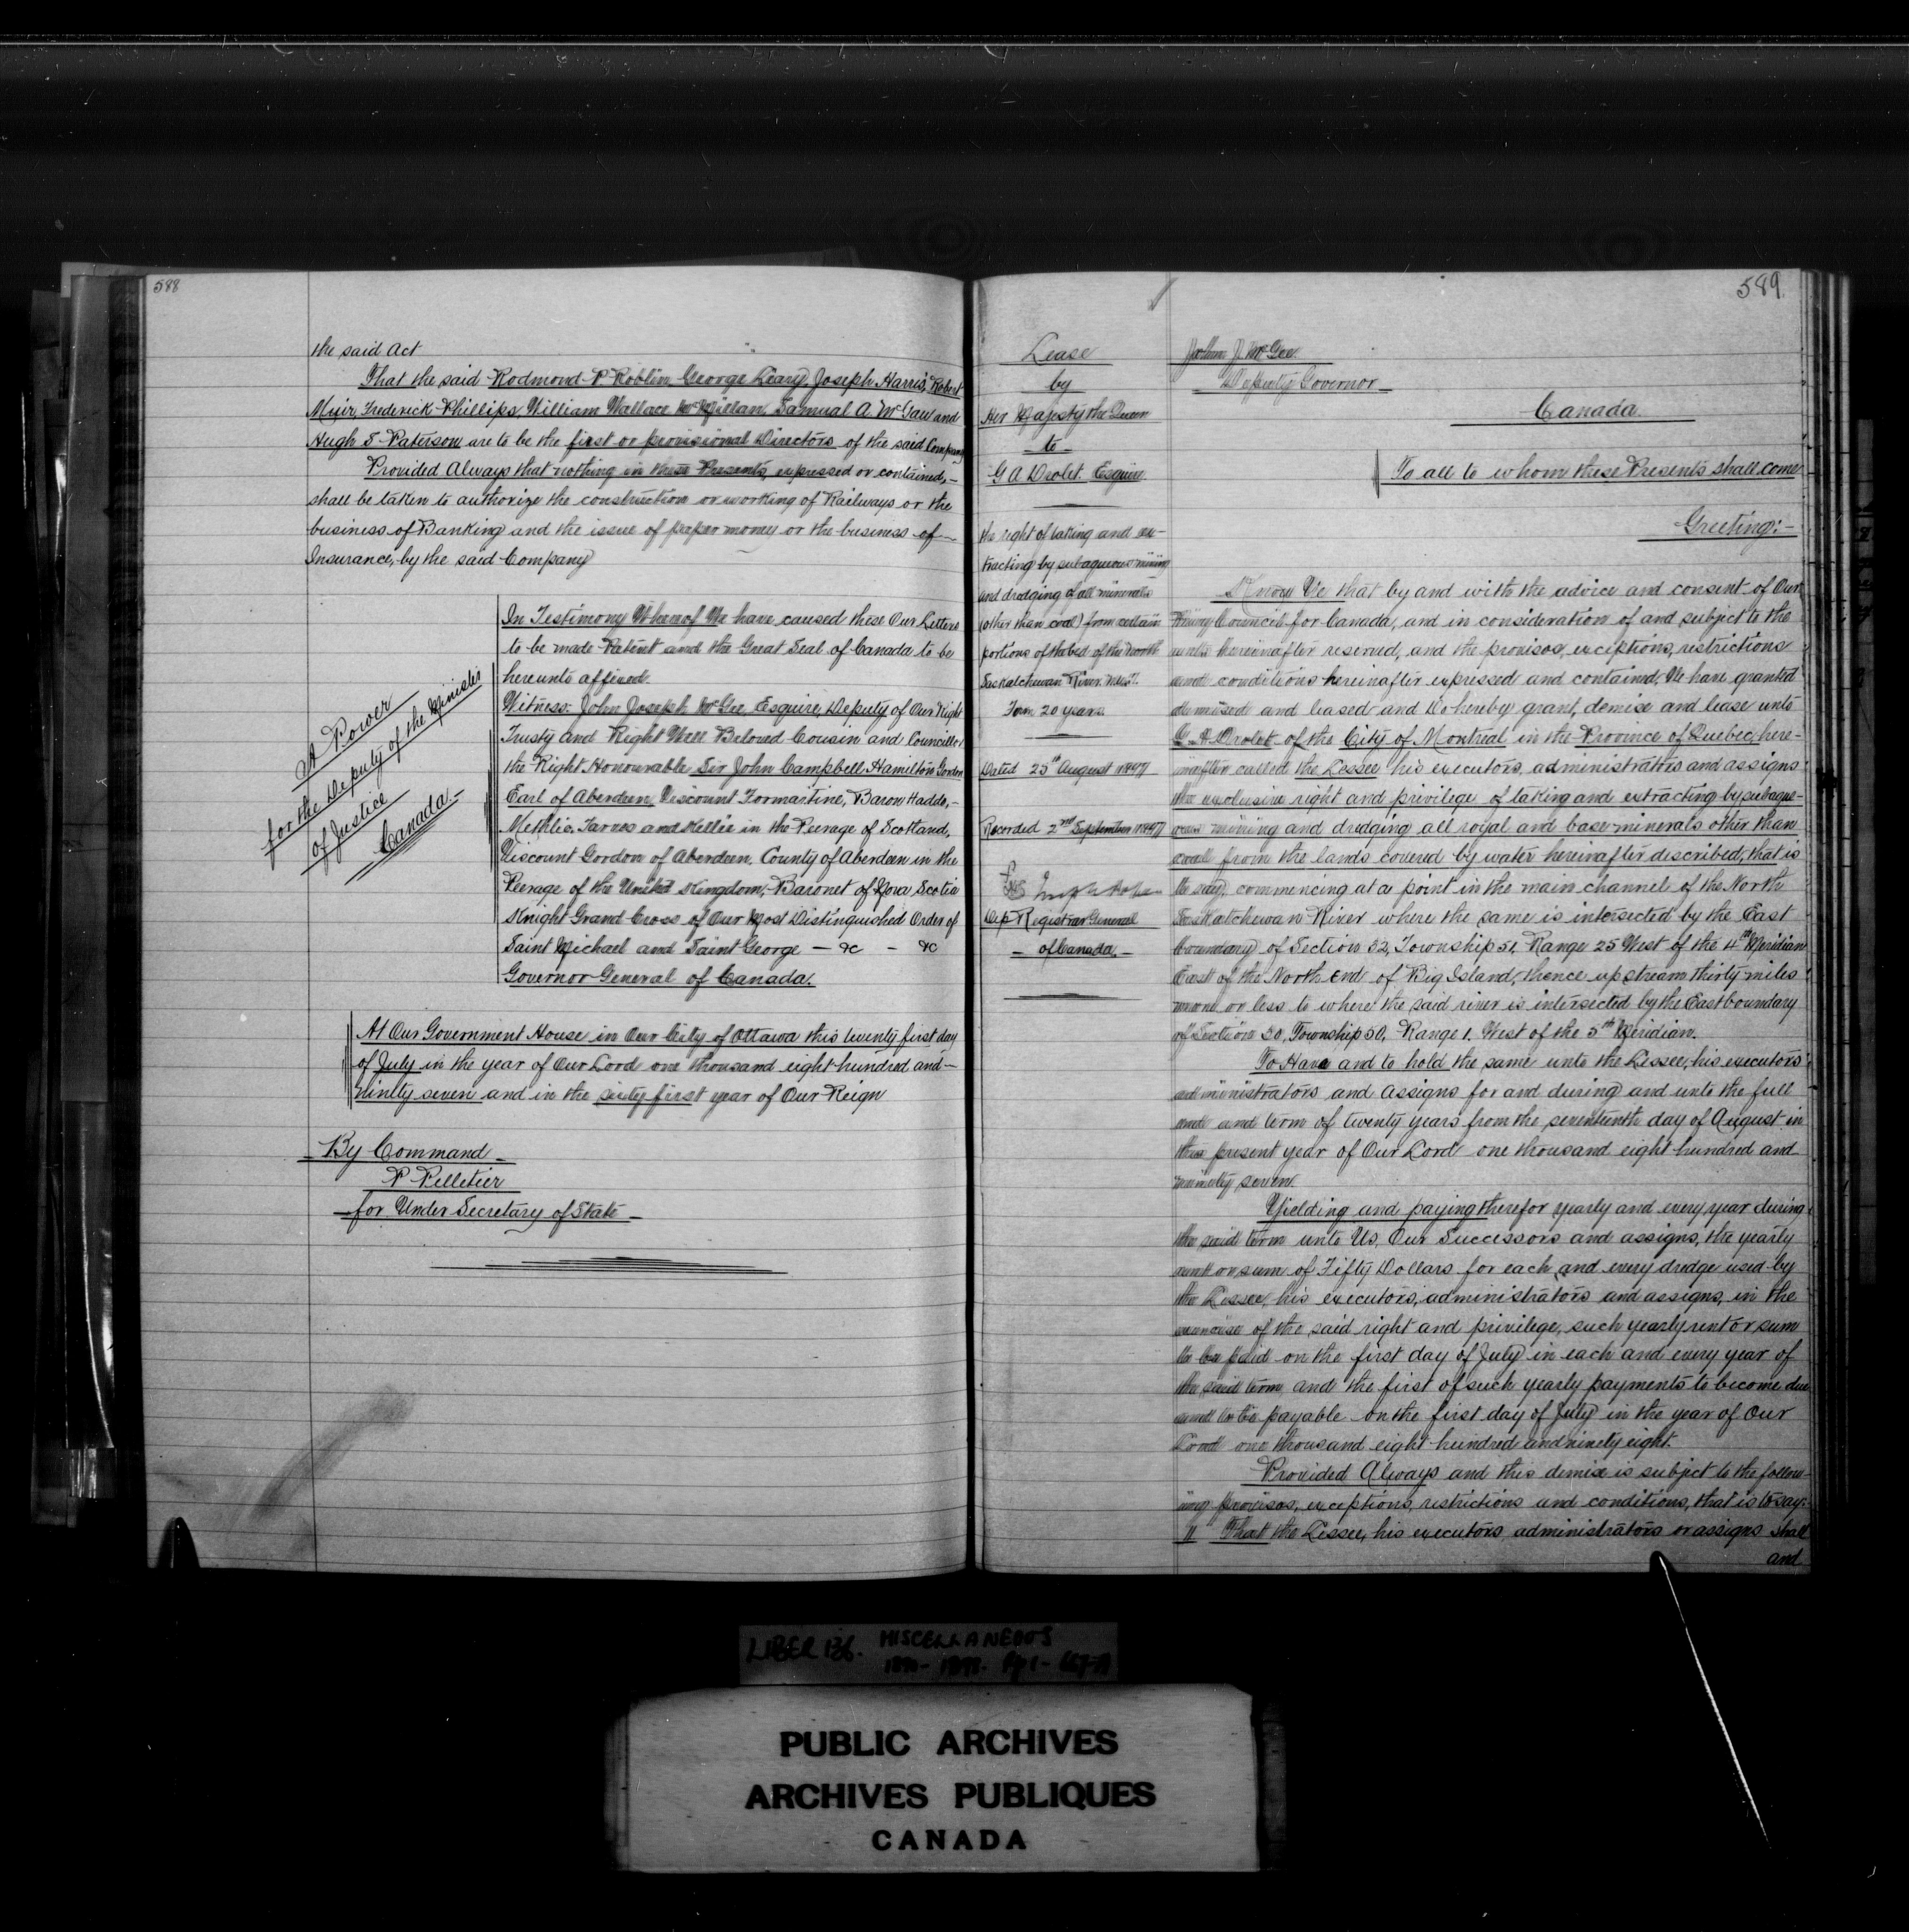 588
the said Act
That the said Rodmond P Roblin, George Leary, Joseph Harris, Robert
Muir, Frederick Phillips, William Wallace McMillan, Samuel A. McGaw and
Hugh S Paterson are to be the first or provisional Directors of the said Company
Provided Always that nothing in these Presents, expressed or contained,—
shall be taken to authorize the construction or working of Railways or the
business of Banking and the issue of paper money or the business of—
Insurance, by the said Company
A Power
for the Deputy of the Minister
of Justice
Canada.—
In Testimony Whereof We have caused these Our Letters
to be made Patent and the Great Seal of Canada to be
hereunto affixed.
Witness: John Joseph McGee, Esquire, Deputy of Our Right
Trusty and Right Well Beloved Cousin and Councillor
the Right Honourable Sir John Campbell Hamilton Gordon
Earl of Aberdeen, Viscount Formartine, Baron Haddo,—
Methlic, Tarves and Kellie in the Peerage of Scotland,
Viscount Gordon of Aberdeen, County of Aberdeen in the
Peerage of the United Kingdom, Baronet of Nova Scotia
Knight Grand Cross of Our Most Distinguished Order of
Saint Michael and Saint George — &c — &c
Governor General of Canada.
At Our Government House in Our City of Ottawa this twenty first day
of July in the year of Our Lord one thousand eight hundred and—
ninety seven and in the sixty first year of Our Reign
By Command—
P Pelletier
—for Under Secretary of State—
589.
Lease
by
Her Majesty the Queen
to
G A Drolet. Esquire
the right of taking and ex-
tracting by subaqueous mining
and dredging of all minerals
(other than coal) from certain
portions of the bed of the North
Saskatchewan River. N.W.T.
Term 20 years.
Dated 25th August 1897
Recorded 2nd September 1897
Dep Registrar General
— of Canada.—
John J. McGee.
Deputy Governor—
Canada.
To all to whom these Presents shall come
Greeting:—
Know Ye that by and with the advice and consent of Our
Privy Council for Canada, and in consideration of and subject to the
rents hereinafter reserved, and the provisos, exceptions, restrictions
and conditions hereinafter expressed and contained, We have granted
demised and leased and Do hereby grant, demise and lease unto
G. A. Drolet of the City of Montreal in the Province of Quebec, here-
inafter called the Lessee his executors, administrators and assigns
the exclusive right and privilege of taking and extracting by subaque-
ous mining and dredging all royal and base minerals other than
coal from the lands covered by water hereinafter described, that is
to say, commencing at a point in the main channel of the North
Saskatchewan River where the same is intersected by the East
boundary of Section 32, Township 51, Range 25 West of the 4th Meridian
East of the North End of Big Island, thence up stream thirty miles
more or less to where the said river is intersected by the East boundary
of Section 30, Township 50, Range 1. West of the 5th Meridian.
To Have and to hold the same unto the Lessee, his executors
administrators and assigns for and during and unto the full
end and term of twenty years from the seventeenth day of August in
the present year of Our Lord one thousand eight hundred and
ninety seven.
Yielding and paying therefor yearly and every year during
the said term unto Us, Our Successors and assigns, the yearly
rent or sum of Fifty Dollars for each and every dredge used by
the Lessee, his executors, administrators and assigns, in the
exercise of the said right and privilege, such yearly rent or sum
to be paid on the first day of July in each and every year of
the said term and the first of such yearly payments to become due
and to be payable on the first day of July in the year of Our
Lord one thousand eight hundred and ninety eight.
Provided Always and this demise is subject to the follow-
ing provisos, exceptions, restrictions and conditions, that is to say:
1/ That the Lessee, his executors administrators or assigns shall
and
LIBER 136. MISCELLANEOUS
PUBLIC ARCHIVES
ARCHIVES PUBLIQUES
CANADA